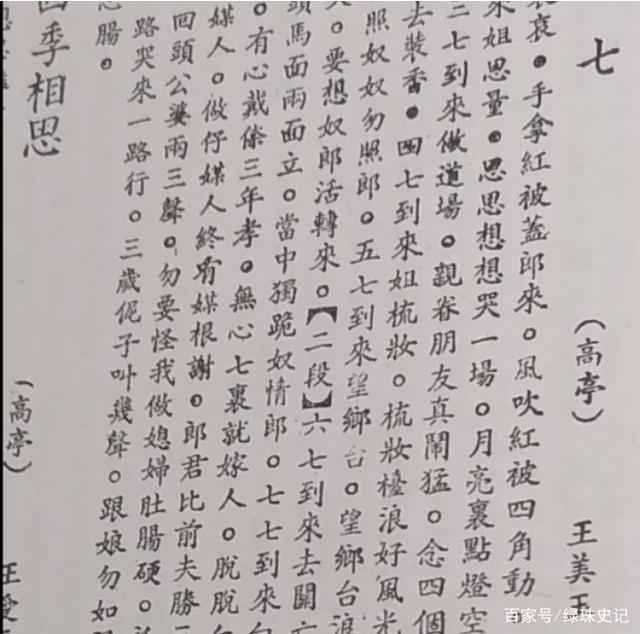 七 （高亭） 王美玉
哀哀。手拿紅被蓋郎來。風吹紅被四角動。
來姐思量。思思想想哭一場。月亮裏點燈空
三七到來做道場。親眷朋友真鬧猛。念四個
去裝香。四七到來姐梳妝。梳妝檯浪好風光
照奴奴勿照郎。五七到來望鄉台。望鄉台浪
。要想奴郎活轉來。【二段】六七到來去關亡
頭馬面兩面立。當中獨跪奴情郎。七七到來
。有心戴傣三年孝。無心七裏就嫁人。脫脫
媒人。做仔媒人終有媒根謝。郎君比前夫勝
回頭公婆兩三聲。勿要怪我做媳婦肚腸硬。
路哭來一路行。三歲伲子叫幾聲。跟娘勿如
腸。
四季相思 （高亭） 王愛
百家号/绿珠史记